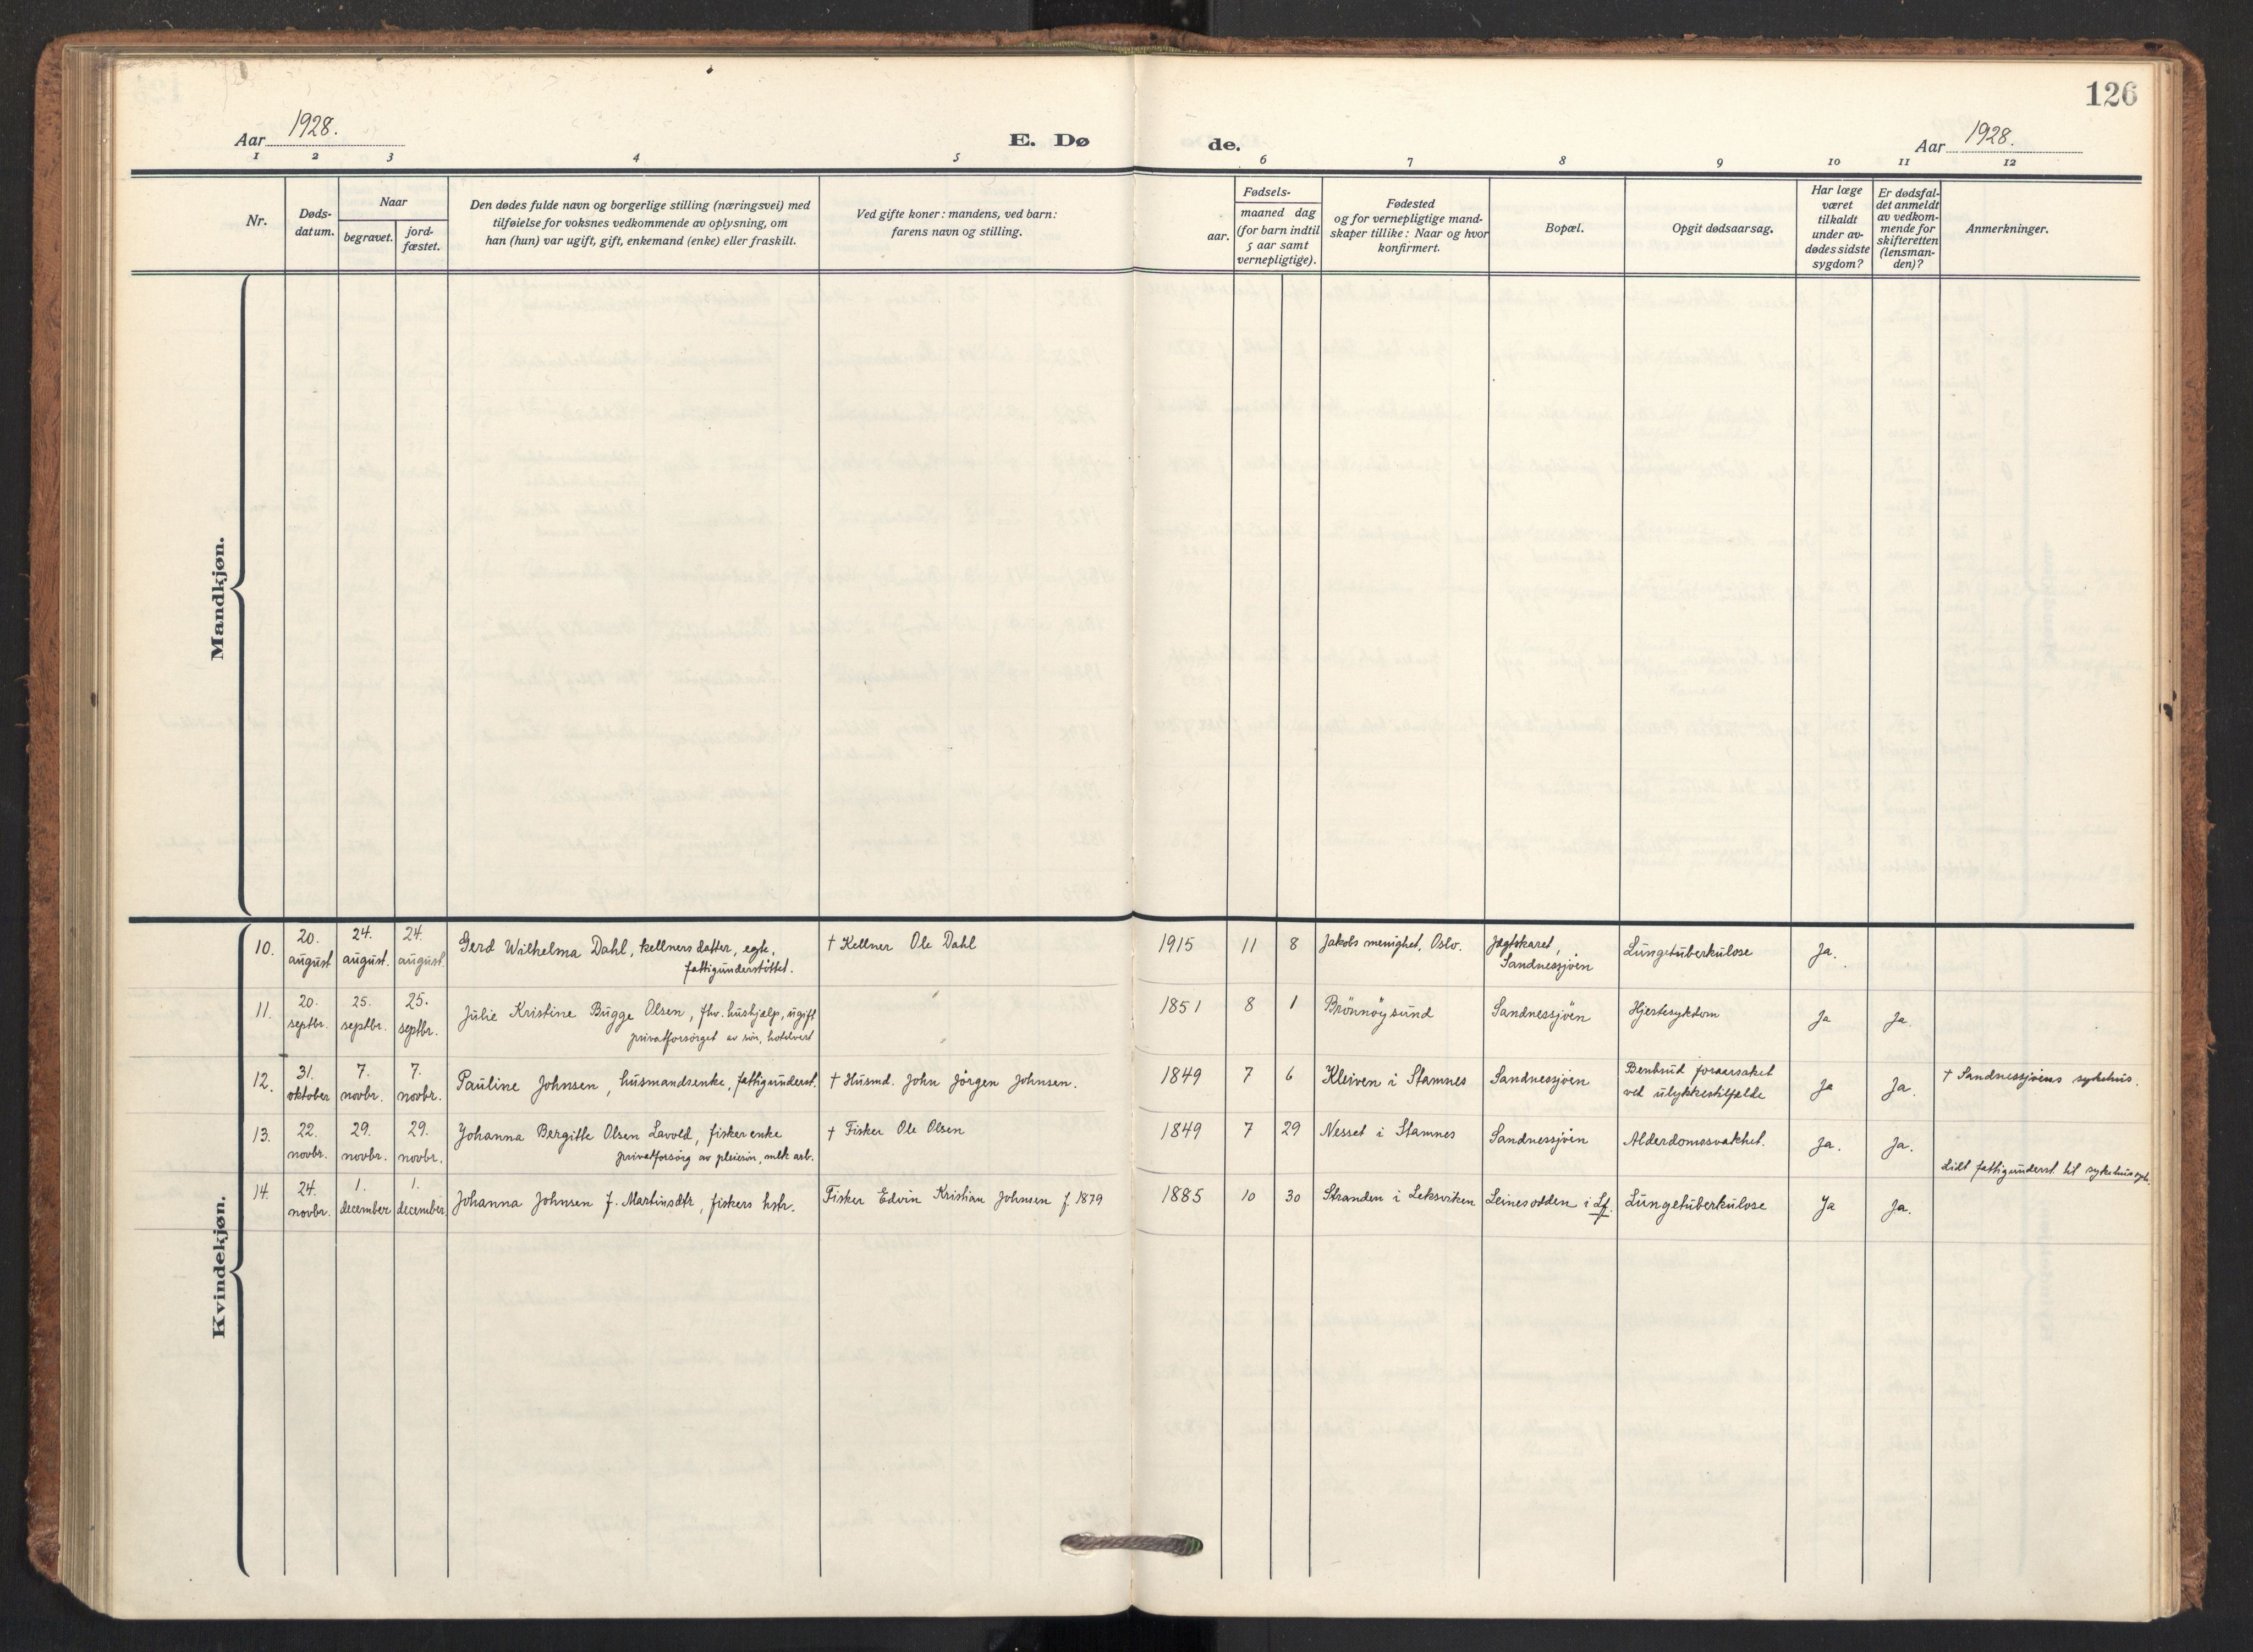 126
Aar 1928.
E. Dø
de.
Aar 1928.
1 2 3 4 5 6 7 8 9 10 11 12
Nr.
Døds-
datum.
Naar
begravet.
jord-
fæstet.
Den dødes fulde navn og borgerlige stilling (næringsvei) med
tilføielse for voksnes vedkommende av oplysning, om
han (hun) var ugift, gift, enkemand (enke) eller fraskilt.
Ved gifte koner: mandens, ved barn:
farens navn og stilling.
aar.
Fødsels-
maaned dag
(for barn indtil
5 aar samt
vernepligtige).
Fødested
og for vernepligtige mand-
skaper tillike: Naar og hvor
konfirmert.
Bopæl.
Opgit dødsaarsag.
Har læge
været
tilkaldt
under av-
dødes sidste
sygdom?
Er dødsfal-
det anmeldt
av vedkom-
mende for
skifteretten
(lensman-
den)?
Anmerkninger.
Mandkjøn.
Kvindekjøn.
10.
20.
august
24.
august.
24.
august.
Gerd Wilhelma Dahl, kellners datter, egte,
fattigunderstöttet.
† Kellner Ole Dahl
1915 11 8
Jakobs menighet, Oslo.
Jægtskaret,
Sandnessjöen
Lungetuberkulose
Ja.
11.
20.
septbr.
25.
septbr.
25.
septbr.
Julie Kristine Bugge Olsen, fhv. hushjelp, ugift
privatforsörget av sön, hotelvert
1851 8 1
Brönnöysund
Sandnessjöen
Hjertesykdom
Ja
Ja.
12.
31.
oktober
7.
novbr.
7.
novbr.
Pauline Johnsen, husmandsenke, fattigunderst.
† Husmd. John Jörgen Johnsen.
1849 7 6
Kleiven i Stamnes
Sandnessjöen
Benbrud foraarsaket
ved ulykkestilfælde
Ja
Ja.
† Sandnessjöens sykehus.
13.
22.
novbr.
29.
novbr.
29.
novbr.
Johanna Bergitte Olsen Lavold, fisker enke
privatforsörg av pleiesön, mek arb.
† Fisker Ole Olsen
1849 7 29
Nesset i Stamnes
Sandnessjöen
Alderdomssvakhet.
Ja.
Ja.
14.
24.
novbr.
1.
december
1.
december
Johanna Johnsen f. Martinsdtr, fiskers hstr.
Fisker Edvin Kristian Johnsen f. 1879
1885 10 30
Stranden i Leksviken
Leinesodden i Lf.
Lungetuberkulose
Ja
Ja.
Lidt fattigunderst. til sykehus